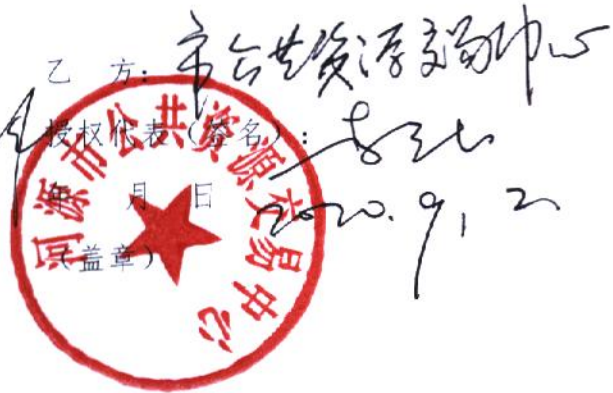 乙 方：市公共资源交易中心
授权代表（签名）：
年 月 日 2020.9.2
（盖章）
河源市公共资源交易中心